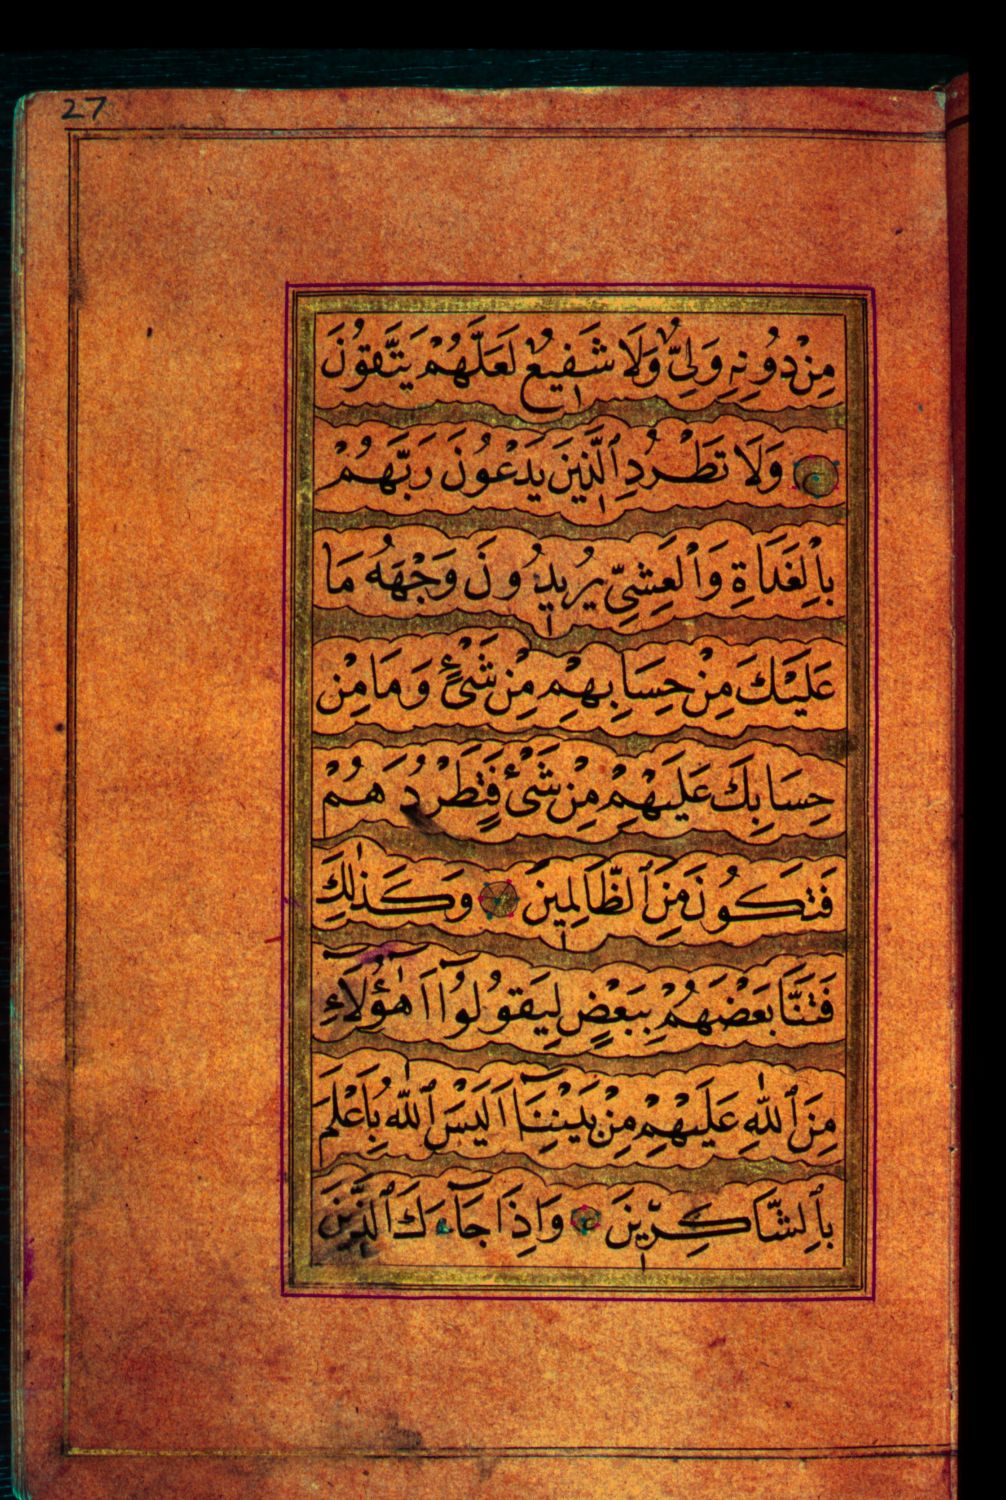 27
مِنْ دُونِهِ وَلِيٌّ وَلَا شَفِيعٌ لَعَلَّهُمْ يَتَّقُونَ
وَلَا تَطْرُدِ ٱلَّذِينَ يَدْعُونَ رَبَّهُمْ
بِٱلْغَدَاةِ وَٱلْعَشِيِّ يُرِيدُونَ وَجْهَهُ مَا
عَلَيْكَ مِنْ حِسَابِهِمْ مِنْ شَيْءٍ وَمَا مِنْ
حِسَابِكَ عَلَيْهِمْ مِنْ شَيْءٍ فَتَطْرُدَهُمْ
فَتَكُونَ مِنَ ٱلظَّالِمِينَ وَكَذٰلِكَ
فَتَنَّا بَعْضَهُمْ بِبَعْضٍ لِيَقُولُوٓا اَهٰٓؤُلَآءِ
مِنَ ٱللّٰهِ عَلَيْهِمْ مِنْ بَيْنِنَآ اَلَيْسَ ٱللّٰهُ بِاَعْلَمَ
بِٱلشَّاكِرِينَ وَاِذَا جَآءَكَ ٱلَّذِينَ